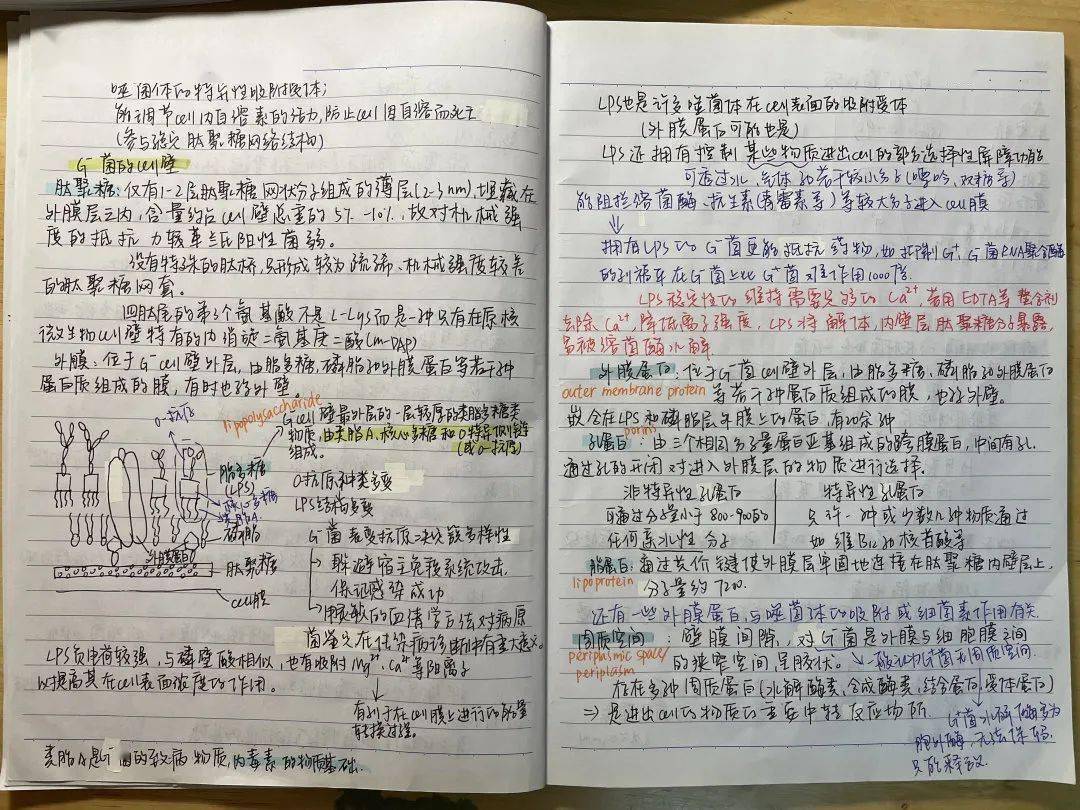 噬菌体的特异性吸附受体;
能调节cell内自溶素的活力,防止cell因自溶而死亡
(参与强定肽聚糖网络结构)
G⁻菌的cell壁
肽聚糖:仅有1-2层肽聚糖网状分子组成的薄层(2-3nm),埋藏在
外膜层之内,含量约占cell壁总重的5%-10%,故对机械强
度的抵抗力较革兰氏阳性菌弱。
没有特殊的肽桥,只形成较为疏稀、机械强度较差
的肽聚糖网套。
四肽尾的第3个氨基酸不是L-Lys而是一种只有在原核
微生物cell壁特有的内消旋二氨基庚二酸(m-DAP)
外膜:位于G⁻cell壁外层,由脂多糖,磷脂和外膜蛋白等若干种
蛋白质组成的膜,有时也称外壁。
lipopolysaccharide
G⁻cell壁最外层的一层较厚的类脂多糖类
物质,由类脂A,核心多糖和O特异侧链
组成。
(或O-抗原)
O抗原种类多变
LPS结构多变
G⁻菌表面抗原决定簇多样性
躲避宿主免疫系统攻击,
保证感染成功
用灵敏的血清学方法对病原
菌鉴定在传染病诊断中有重大意义
O-抗原
脂多糖
(LPS)
核心多糖
类脂A
磷脂
外膜蛋白
肽聚糖
cell膜
LPS负电荷较强,与磷壁酸相似,也有吸附Mg²⁺、Ca²⁺等阳离子
以提高其在cell表面浓度的作用。
有利于在cell膜上进行的能量
转换过程。
类脂A是G⁻菌的致病物质,内毒素的物质基础.
LPS也是许多噬菌体在cell表面的吸附受体
(外膜蛋白可能也是)
LPS还拥有控制某些物质进出cell的部分选择性屏障功能
可透过水、气体和若干较小分子(嘌呤、双糖等)
能阻拦溶菌酶、抗生素(青霉素等)等较大分子进入cell膜
拥有LPS的G⁻菌更能抵抗药物,如抑制G⁺、G⁻菌RNA聚合酶
的利福平在G⁻菌上比G⁺菌难作用1000倍.
LPS稳定性的维持需要足够的Ca²⁺,若用EDTA等螯合剂
去除Ca²⁺,降低离子强度,LPS将解体,内壁层肽聚糖分子暴露,
易被溶菌酶水解.
外膜蛋白:位于G⁻菌cell壁外层,由脂多糖、磷脂和外膜蛋白
outer membrane protein 等若干种蛋白质组成的膜,也称外壁.
嵌合在LPS和磷脂层外膜上的蛋白,有20余种
porins
孔蛋白:由三个相同分子量蛋白亚基组成的跨膜蛋白,中间有孔.
通过孔的开闭对进入外膜层的物质进行选择.
非特异性孔蛋白
可通过分子量小于800-900的
任何亲水性分子
特异性孔蛋白
只许一种或少数几种物质通过
如维B12和核苷酸等
脂蛋白:通过共价键使外膜层牢固地连接在肽聚糖内壁层上,
lipoprotein 分子量约7200.
还有一些外膜蛋白与噬菌体的吸附或细菌素作用有关.
周质空间:壁膜间隙,对G⁻菌是外膜与细胞膜之间
periplasmic space/
periplasm
的狭窄空间呈胶状。
菌无周质空间
存在多种周质蛋白(水解酶类,合成酶类,结合蛋白,受体蛋白)
⇒是进出cell的物质的主要中转反应场所.
G⁺菌水解酶多为
胞外酶,无法保留.
只能释放.